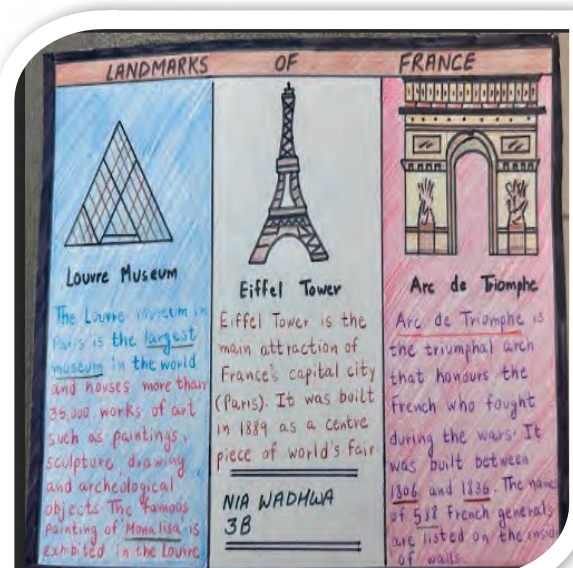 LANDMARKS OF FRANCE
Louvre Museum
The Louvre museum in
Paris is the largest
museum in the world
and houses more than
35,000 works of art
such as paintings,
sculpture, drawing
and archeological
objects The famous
painting of 'Monalisa' is
exhibited in the Louvre
Eiffel Tower
Eiffel Tower is the
main attraction of
France's capital city
(Paris). It was built
in 1889 as a centre
piece of world's fair
NIA WADHWA
3B
Arc de Triomphe
Arc de Triomphe is
the triumphal arch
that honours the
French who fought
during the wars. It
was built between
1806 and 1836. The name
of 558 French generals
are listed on the inside
of walls